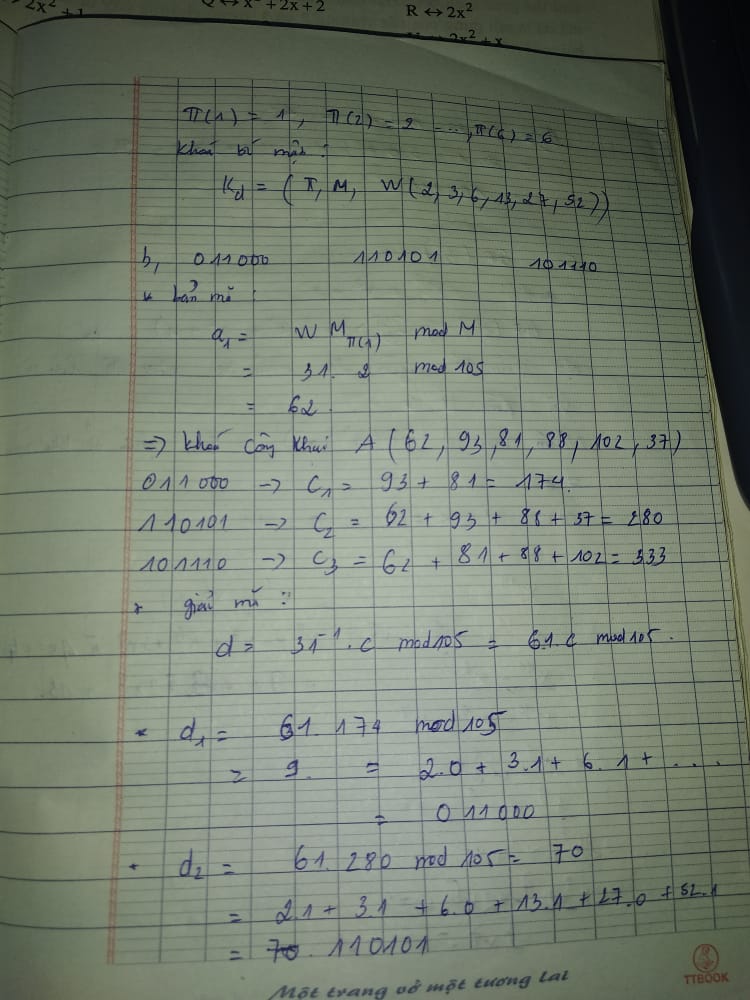 2x² + 1 Q ↔ x² + 2x + 2 R ↔ 2x²
↔ 2x² + x
π(1) = 1, π(2) = 2 ..., π(6) = 6
Khoá bí mật:
K_d = (π, M, W(2, 3, 6, 13, 27, 52))
b, 011000 110101 101110
* bản mã:
a₁ = W M_π(1) mod M
= 31. 2 mod 105
= 62.
=> khoá công khai A (62, 93, 81, 88, 102, 37)
011000 -> C₁ = 93 + 81 = 174.
110101 -> C₂ = 62 + 93 + 88 + 37 = 280
101110 -> C₃ = 62 + 81 + 88 + 102 = 333
* giải mã:
d = 31⁻¹. c mod 105 = 61. c mod 105.
* d₁ = 61. 174 mod 105
= 9. = 2.0 + 3.1 + 6.1 + ....
= 011000
* d₂ = 61. 280 mod 105 = 70
= 2.1 + 3.1 + 6.0 + 13.1 + 27.0 + 52.1
= 70. 110101
Một trang vở một tương lai
TTBOOK